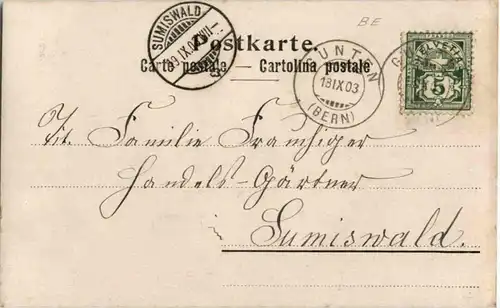 BE
SUMISWALD
Postkarte.
Carte postale — Cartolina postale
18 IX 03
(BERN)
HELVETIA
5
Tit. Familie Frauchiger
Handels-Gärtner
in Sumiswald.